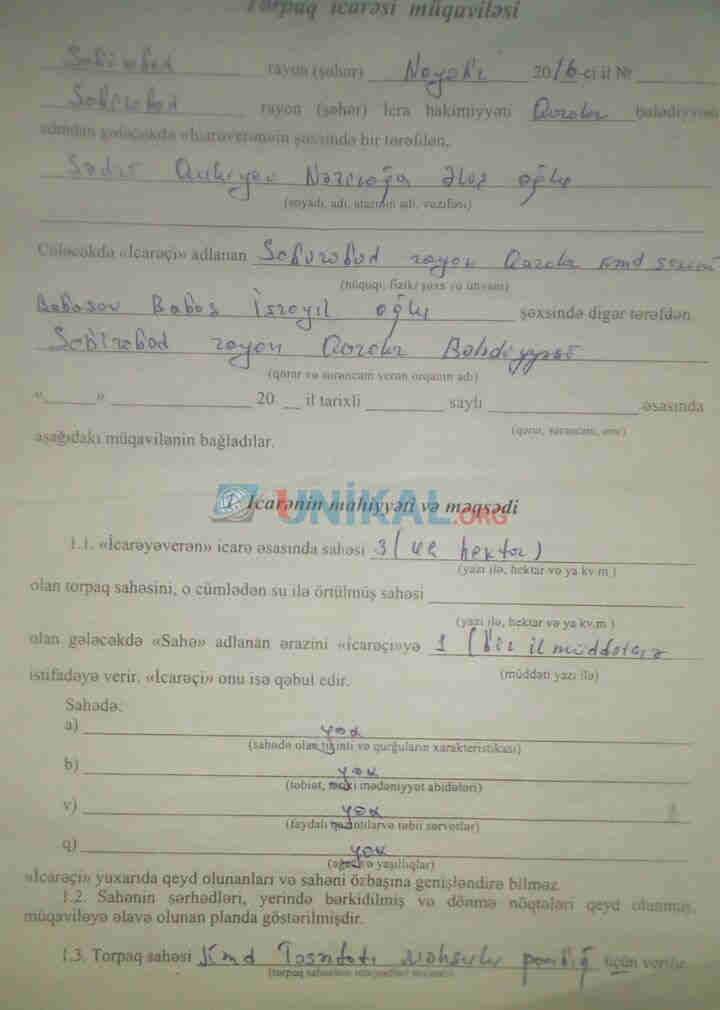 Torpaq icarəsi müqaviləsi
Sabirabad rayon (şəhər) Noyabr 2016-ci il №
Sabirabad rayon (şəhər) İcra hakimiyyəti Qaralar bələdiyyəsi
adından gələcəkdə «İcarəverən»in şəxsində bir tərəfdən,
Sədri Quliyev oğlu
(soyadı, adı, atasının adı, vəzifəsi)
Gələcəkdə «İcarəçi» adlanan Sabirabad rayon Qaralar kənd sakini
(hüquqi, fiziki şəxs və ünvanı)
Babasov Babaş İsrayıl oğlu şəxsində digər tərəfdən
Sabirabad rayon Qaralar Bələdiyyəsi
(qərar və sərəncam verən orqanın adı)
«____» ____ 20 __ il tarixli ____ saylı ____ əsasında
(qərar, sərəncam, əmr)
aşağıdakı müqavilənin bağladılar.
UNİKAL.ORG
1. İcarənin mahiyyəti və məqsədi
1.1. «İcarəyəverən» icarə əsasında sahəsi 3 (üç hektar)
(yazı ilə, hektar və ya kv.m.)
olan torpaq sahəsini, o cümlədən su ilə örtülmüş sahəsi
(yazı ilə, hektar və ya kv.m.)
olan gələcəkdə «Sahə» adlanan ərazini «icarəçi»yə 1 (bir il müddətinə
istifadəyə verir, «İcarəçi» onu isə qəbul edir. (müddəti yazı ilə)
Sahədə:
a) yox
(sahədə olan tikinti və qurğuların xarakteristikası)
b) yox
(təbiət, mədəniyyət abidələri)
v) yox
(faydalı qazıntılar və təbii sərvətlər)
q) yox
(ağac və yaşıllıqlar)
«İcarəçi» yuxarıda qeyd olunanları və sahəni özbaşına genişləndirə bilməz.
1.2. Sahənin sərhədləri, yerində bərkidilmiş və dönmə nöqtələri qeyd olunmuş,
müqaviləyə əlavə olunan planda göstərilmişdir.
1.3. Torpaq sahəsi kənd Təsərrüfatı məhsulu üçün verilir